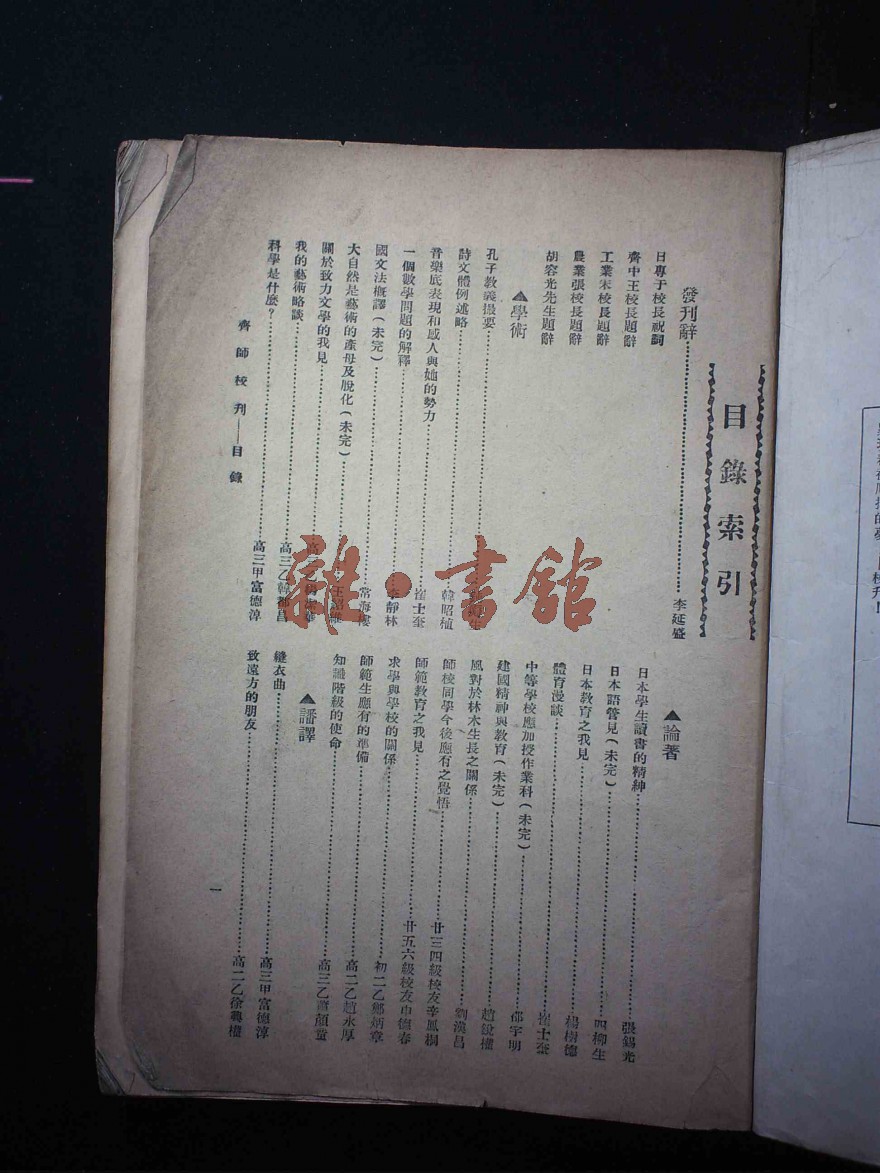 目錄索引
發刊辭……李延盛
日專于校長祝詞
齊中王校長題辭
工業宋校長題辭
農業張校長題辭
胡容光先生題辭
▲學術
孔子教義撮要……
詩文體例述略……韓昭植
音樂底表現和感人與她的勢力……崔士奎
一個數學問題的解釋……李靜林
國文法概譯(未完)……常海樓
大自然是藝術的產母及脫化(未完)……
關於致力文學的我見……
我的藝術略談……高三乙韓都昌
科學是什麼?……高三甲富德淳
▲論著
日本學生讀書的精神……張錫光
日本語管見(未完)……四柳生
日本教育之我見……楊樹德
體育漫談……崔士奎
中等學校應加授作業科(未完)……邵宇明
建國精神與教育(未完)……趙銳權
風對於林木生長之關係……劉漢昌
師校同學今後應有之覺悟……廿三四級校友李鳳桐
師範教育之我見……廿五六級校友申德春
求學與學校的關係……初二乙鄒炳章
師範生應有的準備……高二乙趙永厚
知識階級的使命……高三乙蕭顏童
▲譒譯
縫衣曲……高三甲富德淳
致遠方的朋友……高二乙徐興權
齊師校刊——目錄
一
雜·書館